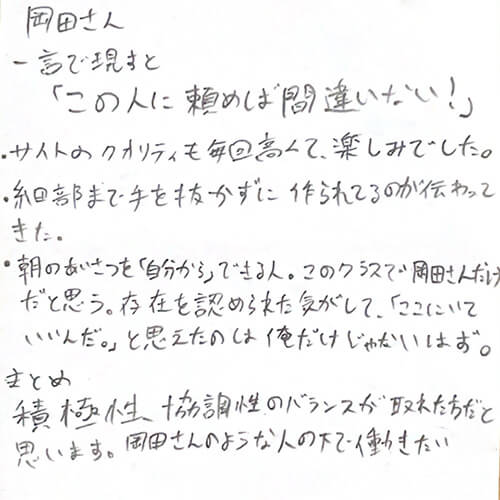 岡田さん
一言で現すと
「この人に頼めば間違いない!」
・サイトのクオリティも毎回高くて、楽しみでした。
・細部まで手を抜かずに作られてるのが伝わって
きた。
・朝のあいさつを「自分から」できる人。このクラスで岡田さんだけ
だと思う。存在を認められた気がして、「ここにいて
いいんだ。」と思えたのは俺だけじゃないはず。
まとめ
積極性、協調性のバランスが取れた方だと
思います。岡田さんのような人の下で働きたい